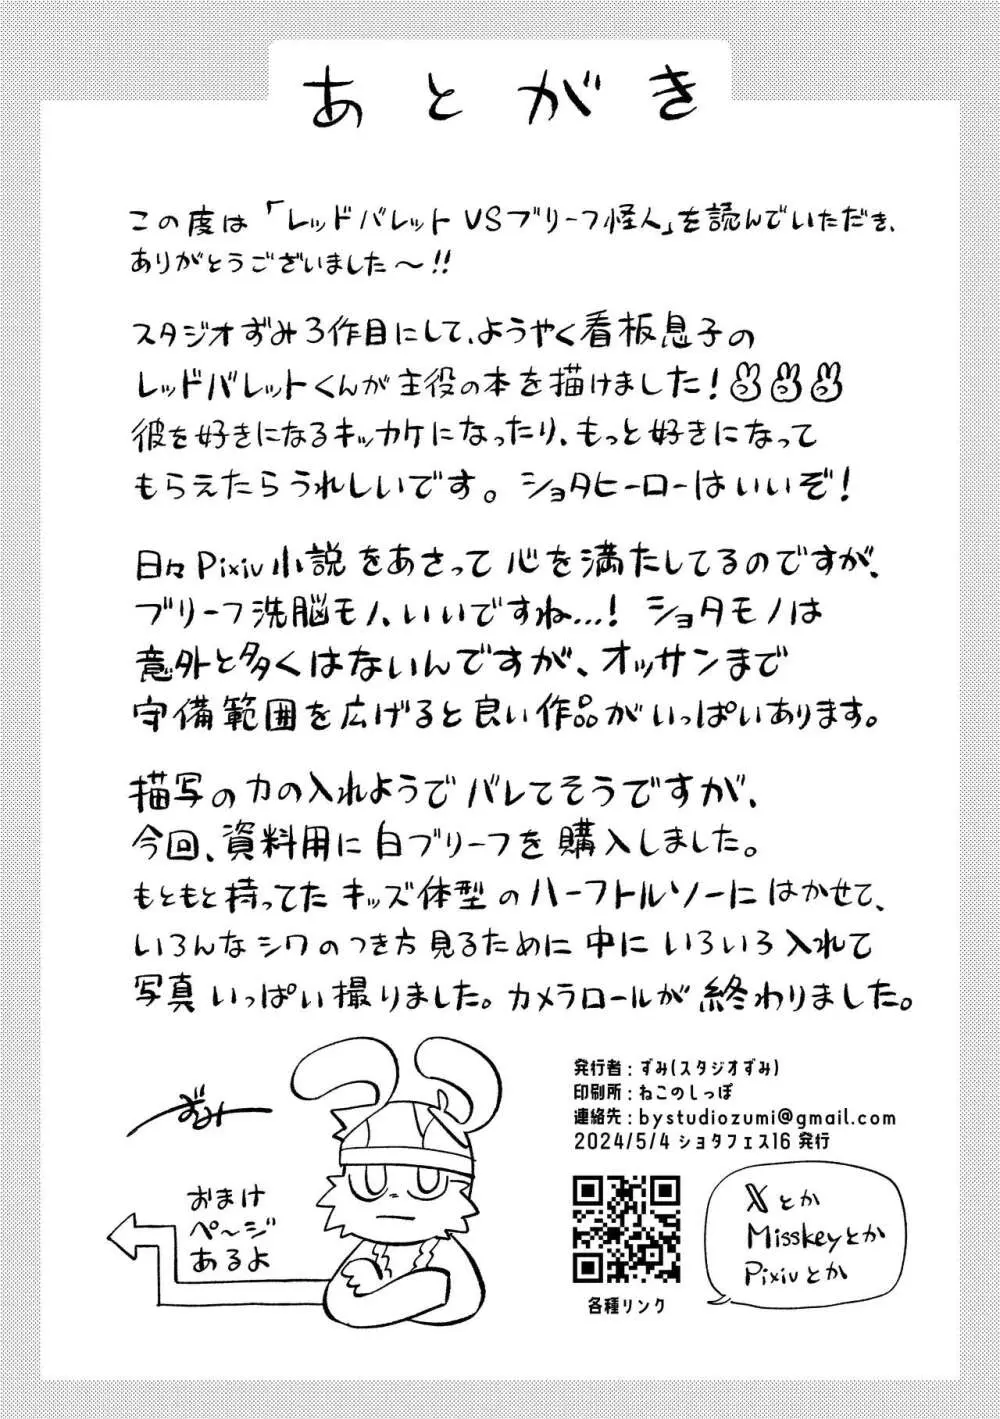 あとがき
この度は「レッドバレットVSブリーフ怪人」を読んでいただき、
ありがとうございました〜!!
スタジオずみ3作目にして、ようやく看板息子の
レッドバレットくんが主役の本を描けました!
彼を好きになるキッカケになったり、もっと好きになって
もらえたらうれしいです。ショタヒーローはいいぞ!
日々Pixiv小説をあさって心を満たしてるのですが、
ブリーフ洗脳モノ、いいですね...! ショタモノは
意外と多くはないんですが、オッサンまで
守備範囲を広げると良い作品がいっぱいあります。
描写の力の入れようでバレてそうですが、
今回、資料用に白ブリーフを購入しました。
もともと持ってたキッズ体型のハーフトルソーにはかせて、
いろんなシワのつき方見るために中にいろいろ入れて
写真いっぱい撮りました。カメラロールが終わりました。
ずみ
おまけ
ページ
あるよ
発行者:ずみ(スタジオずみ)
印刷所:ねこのしっぽ
連絡先:bystudiozumi@gmail.com
2024/5/4 ショタフェス16 発行
各種リンク
Xとか
Misskeyとか
Pixivとか